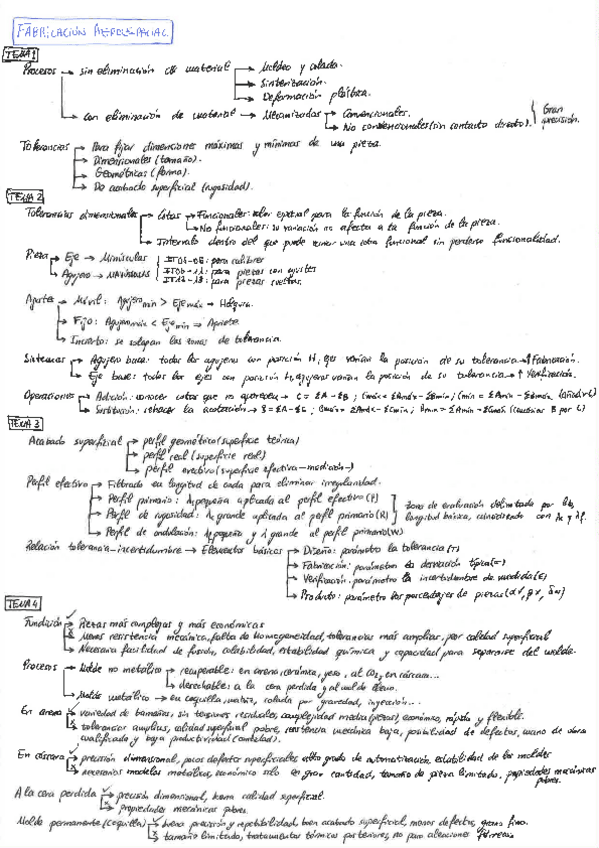 FABRICACIÓN AEROESPACIAL
TEMA 1
Procesos → sin eliminación de material → Moldeo y colada.
→ Sinterización.
→ Deformación plástica.
→ con eliminación de material → Mecanizados → Convencionales.
→ No convencionales (sin contacto directo). } Gran precisión.
Tolerancias → Para fijar dimensiones máximas y mínimas de una pieza
→ Dimensionales (tamaño).
→ Geométricas (forma).
→ De acabado superficial (rugosidad).
TEMA 2
Tolerancias dimensionales → Cotas → Funcionales: valor esencial para la función de la pieza.
→ No funcionales: su variación no afecta a la función de la pieza.
→ Intervalo dentro del que puede variar una cota funcional sin perderse funcionalidad.
Pieza → Eje → Minúsculas
→ Agujero → MAYÚSCULAS
para calibres
para piezas con ajustes
para piezas sueltas.
Ajustes → Móvil: Agujero min > Eje máx → Holgura.
→ Fijo: Agujero máx < Eje min → Apriete
→ Incierto: se solapan las zonas de tolerancia.
Sistemas → Agujero base: todos los agujeros con posición H, ejes varían la posición de su tolerancia → ↑ Fabricación.
→ Eje base: todos los ejes con posición h, agujeros varían la posición de su tolerancia → ↑ Verificación.
Operaciones → Adición: conocer cotas que no aparecen → C = ΣA - ΣB
→ Sustitución: rehacer la acotación → B = ΣA - ΣC
TEMA 3
Acabado superficial → perfil geométrico (superficie teórica)
→ perfil real (superficie real)
→ perfil efectivo (superficie efectiva - medición -)
Perfil efectivo → Filtrado en longitud de onda para eliminar irregularidad.
→ Perfil primario: λ pequeña aplicada al perfil efectivo (P)
→ Perfil de rugosidad: λ grande aplicada al perfil primario (R)
→ Perfil de ondulación: λ pequeño y λ grande al perfil primario (W)
} Zona de evaluación delimitada por la longitud básica, coincidiendo con λc y λf.
Relación tolerancia-incertidumbre → Elementos básicos → Diseño: parámetro la tolerancia (T)
→ Fabricación: parámetro la desviación típica
→ Verificación: parámetro la incertidumbre de medida
→ Producto: parámetro los porcentajes de piezas
TEMA 4
Fundición → Piezas más complejas y más económicas
→ Menos resistencia mecánica, falta de homogeneidad, tolerancias más amplias, peor calidad superficial
→ Necesaria facilidad de fusión, colabilidad, estabilidad química y capacidad para separarse del molde.
Procesos → Molde no metálico → recuperable: en arena, cerámica, yeso, al CO2, en cáscara...
→ desechable: a la cera perdida y al molde lleno.
→ Molde metálico → en coquilla, matriz, colada por gravedad, inyección...
En arena → variedad de tamaños, sin tensiones residuales, complejidad media (piezas), económico, rápido y flexible.
→ tolerancias amplias, calidad superficial pobre, resistencia mecánica baja, posibilidad de defectos, mano de obra cualificada y baja productividad (cantidad).
En cáscara → precisión dimensional, pocos defectos superficiales, alto grado de automatización, estabilidad de los moldes
→ necesarios modelos metálicos, económico solo en gran cantidad, tamaño de pieza limitado, propiedades mecánicas pobres.
A la cera perdida → precisión dimensional, buena calidad superficial.
→ propiedades mecánicas pobres.
Molde permanente (coquilla) → buena precisión y repetibilidad, buen acabado superficial, menos defectos, grano fino.
→ tamaño limitado, tratamientos térmicos posteriores, no para aleaciones férreas.